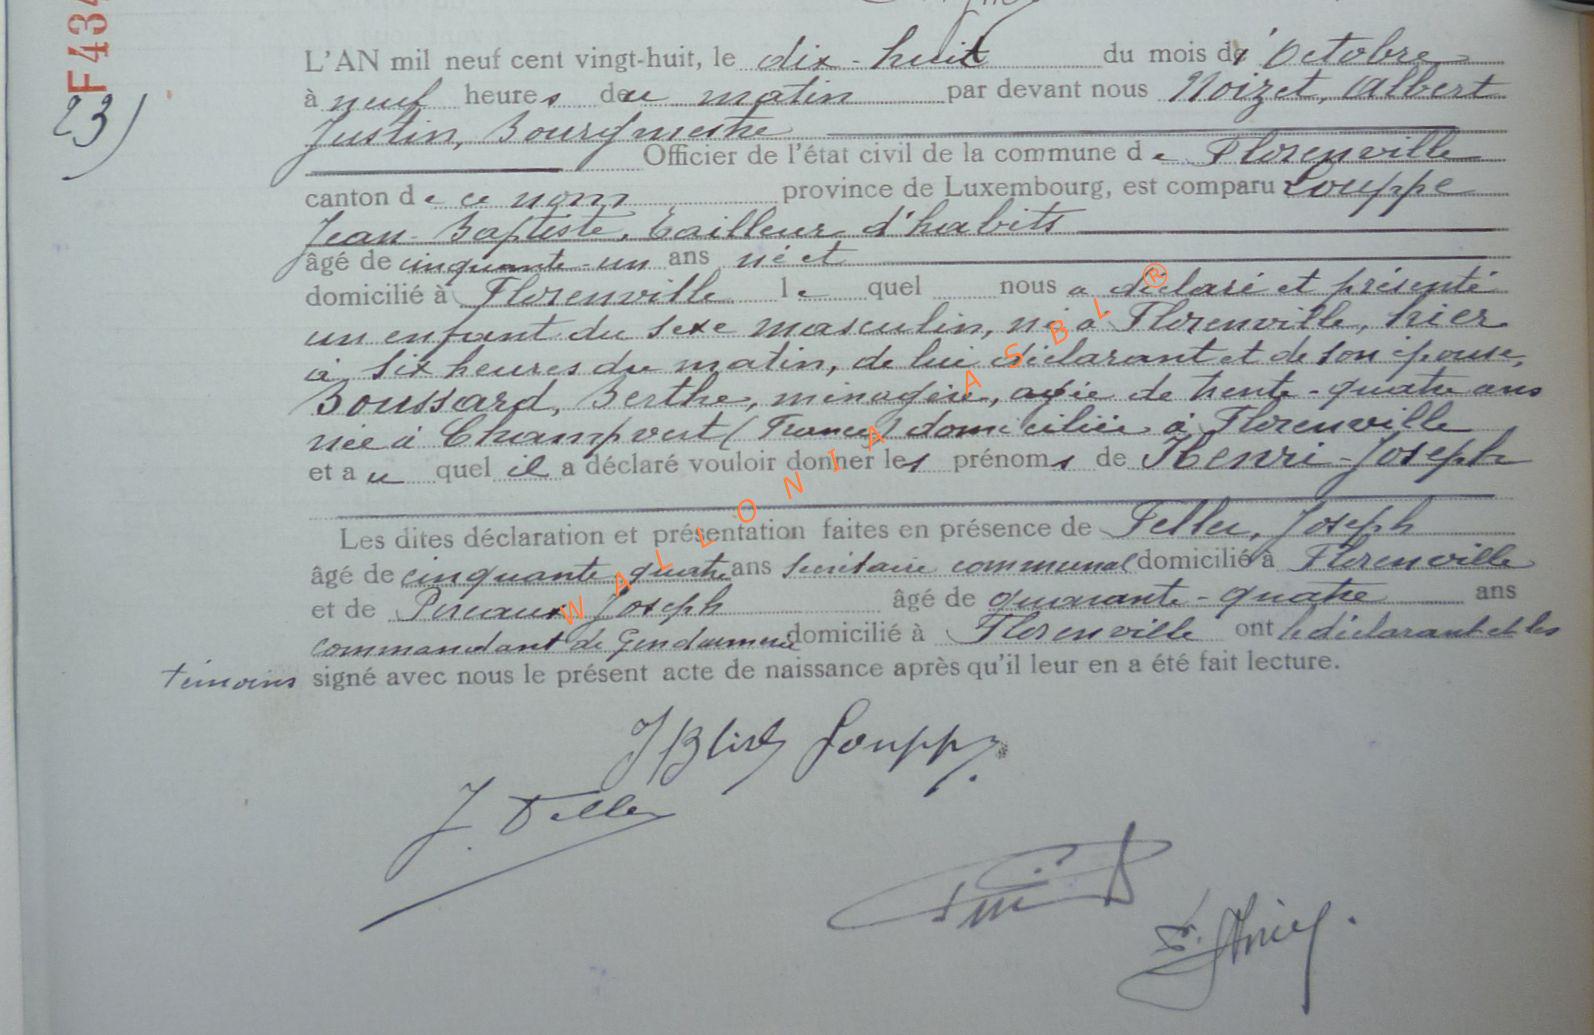 F434
23)
L'AN mil neuf cent vingt-huit, le dix-huit du mois d'Octobre
à neuf heures du matin par devant nous Noizet, Albert
Justin, Bourgmestre
Officier de l'état civil de la commune de Florenville
canton de ce nom province de Luxembourg, est comparu Louppe
Jean-Baptiste, tailleur d'habits
âgé de cinquante-un ans né et
domicilié à Florenville lequel nous a déclaré et présenté
un enfant du sexe masculin, né à Florenville, hier
à six heures du matin, de lui déclarant et de son épouse,
Boussard, Berthe, ménagère, agée de trente-quatre ans
née à Champvert (France) domiciliée à Florenville
et au quel il a déclaré vouloir donner les prénoms de Henri-Joseph
Les dites déclaration et présentation faites en présence de Feller, Joseph
âgé de cinquante quatre ans secrétaire communal domicilié à Florenville
et de Pireaux Joseph âgé de quarante-quatre ans
commandant de Gendarmerie domicilié à Florenville ont le déclarant et les
témoins signé avec nous le présent acte de naissance après qu'il leur en a été fait lecture.
Louppe
J. Feller
WALLONIA ASBL ®